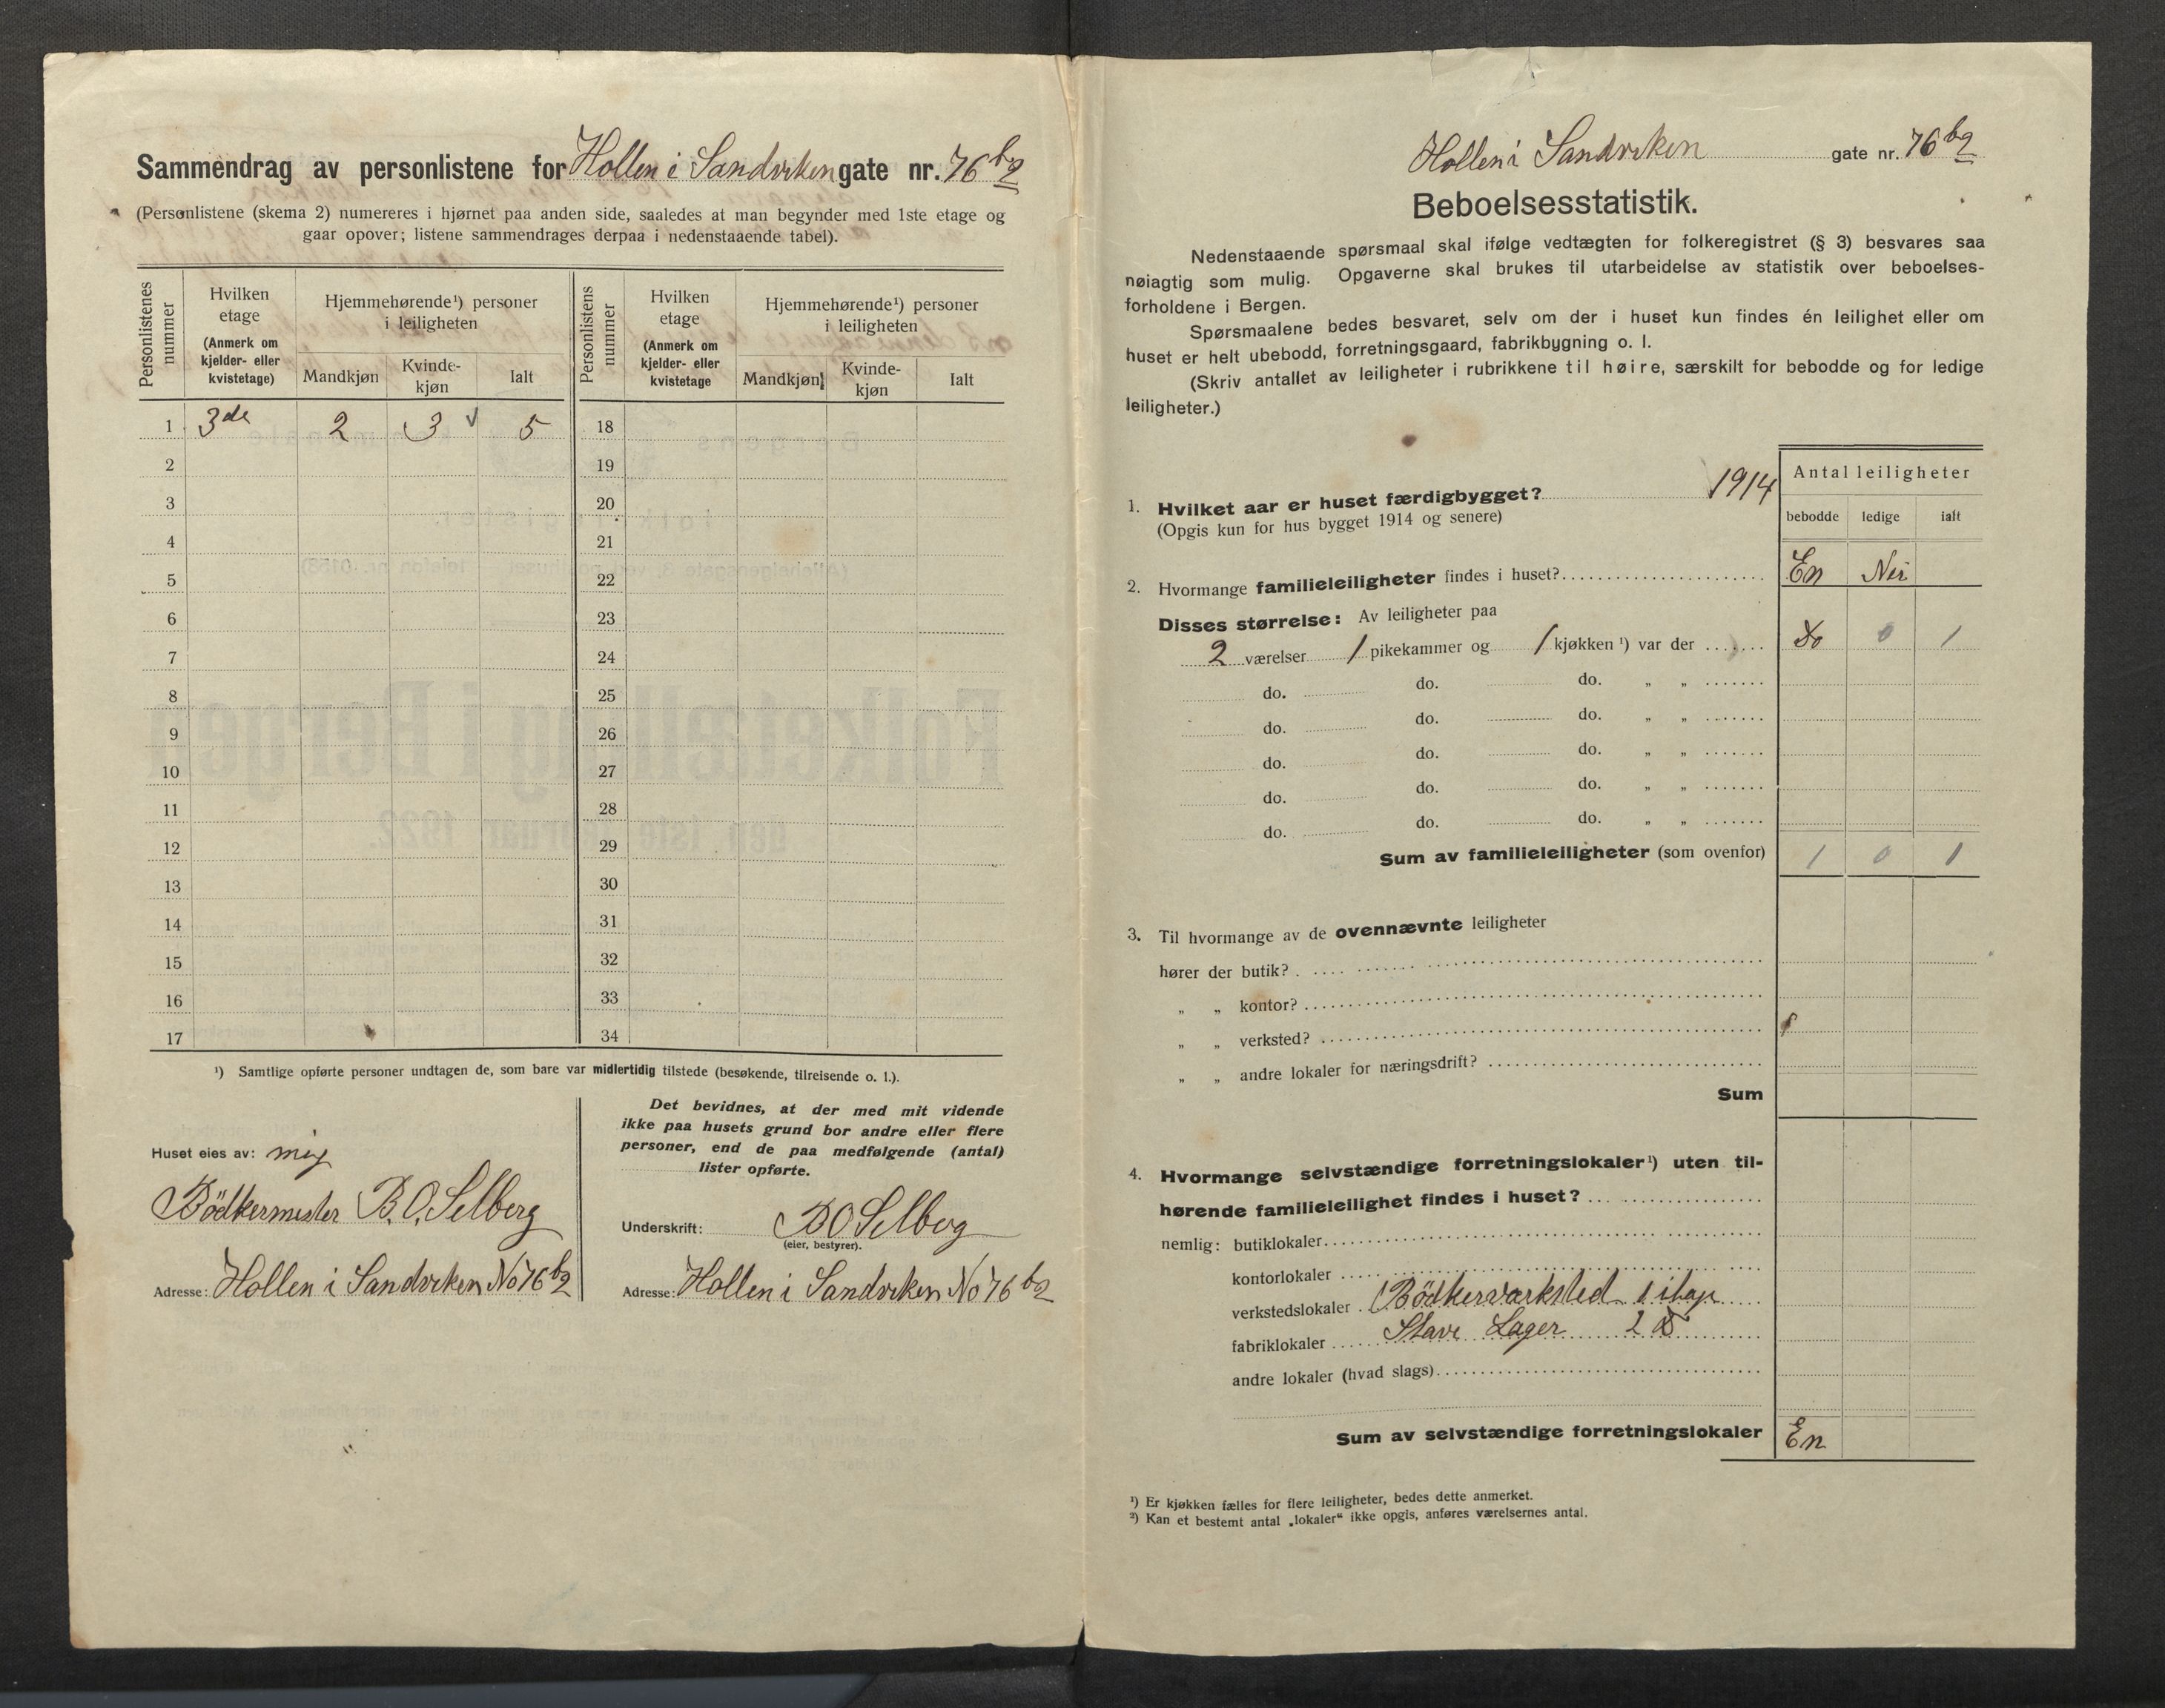 Sammendrag av personlistene for Hollen i Sandviken gate nr. 76 b2
(Personlistene (skema 2) numereres i hjørnet paa anden side, saaledes at man begynder med 1ste etage og
gaar opover; listene sammendrages derpaa i nedenstaaende tabel).
Personlistenes nummer
Hvilken etage
(Anmerk om kjelder- eller kvistetage)
Hjemmehørende¹) personer i leiligheten
Mandkjøn
Kvinde-kjøn
Ialt
Personlistens nummer
Hvilken etage
(Anmerk om kjelder- eller kvistetage
Hjemmehørende¹) personer i leiligheten
Mandkjøn
Kvinde-kjøn
Ialt
1 3de 2 3 5 18
2 19
3 20
4 21
5 22
6 23
7 24
8 25
9 26
10 27
11 28
12 29
13 30
14 31
15 32
16 33
17 34
¹) Samtlige opførte personer undtagen de, som bare var midlertidig tilstede (besøkende, tilreisende o. l.).
Huset eies av: mig
Bödkermester B. O. Selberg
Adresse: Hollen i Sandviken No 76 b2
Det bevidnes, at der med mit vidende
ikke paa husets grund bor andre eller flere
personer, end de paa medfølgende (antal)
lister opførte.
Underskrift: B O Selberg
(eier, bestyrer).
Adresse: Hollen i Sandviken No 76 b2
Hollen i Sandviken gate nr. 76 b2
Beboelsesstatistik.
Nedenstaaende spørsmaal skal ifølge vedtægten for folkeregistret (§ 3) besvares saa
nøiagtig som mulig. Opgaverne skal brukes til utarbeidelse av statistik over beboelses-
forholdene i Bergen.
Spørsmaalene bedes besvaret, selv om der i huset kun findes én leilighet eller om
huset er helt ubebodd, forretningsgaard, fabrikbygning o. l.
(Skriv antallet av leiligheter i rubrikkene til høire, særskilt for bebodde og for ledige
leiligheter.)
Antal leiligheter
bebodde ledige ialt
1. Hvilket aar er huset færdigbygget? 1914
(Opgis kun for hus bygget 1914 og senere)
2. Hvormange familieleiligheter findes i huset? En Nei
Disses størrelse: Av leiligheter paa
2 værelser 1 pikekammer og 1 kjøkken ¹) var der do 0 1
do. do. do. " "
do. do. do. " "
do. do. do. " "
do. do. do. " "
do. do. do. " "
Sum av familieleiligheter (som ovenfor) 1 0 1
3. Til hvormange av de ovennævnte leiligheter
hører der butik?
" " kontor?
" " verksted?
" " andre lokaler for næringsdrift?
Sum
4. Hvormange selvstændige forretningslokaler¹) uten til-
hørende familieleilighet findes i huset?
nemlig: butiklokaler
kontorlokaler
verkstedslokaler Bödkerværksted 1 itap
fabriklokaler Stave Lager 2
andre lokaler (hvad slags)
Sum av selvstændige forretningslokaler En
¹) Er kjøkken fælles for flere leiligheter, bedes dette anmerket.
²) Kan et bestemt antal „lokaler“ ikke opgis, anføres værelsernes antal.